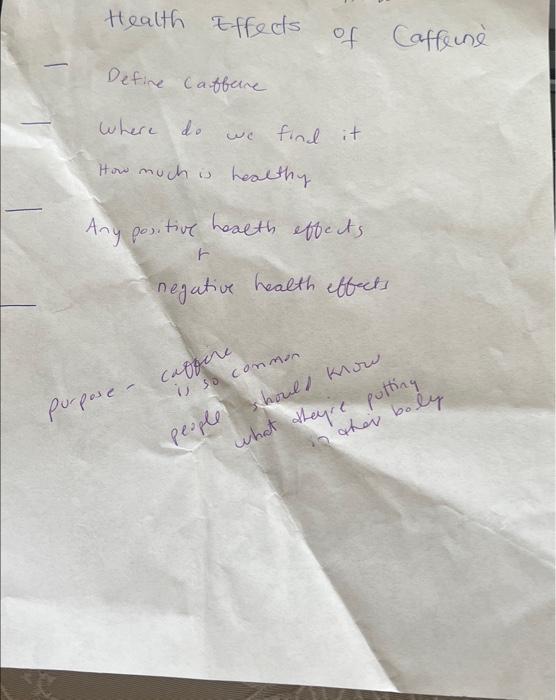 Health Effects of Caffeine
— Define Caffeine
— Where do we find it
How much is healthy
— Any positive health effects
+
negative health effects
—
purpose - caffeine
is so common
people should know
what they're putting
in their body